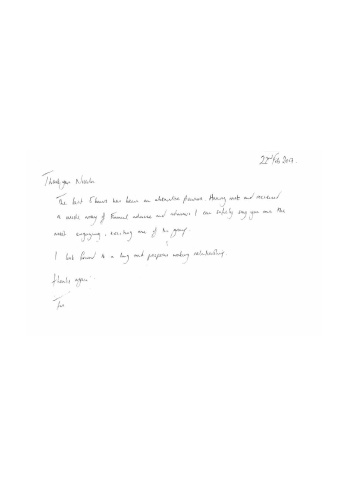 22nd Feb 2017.
Thank you
The last 5 hours has been an absolute pleasure. Having met and
a wide array of financial advisors and I can safely say you are the
most engaging, exciting one of the group.
I look forward to a long and prosperous working relationship.
Thanks again